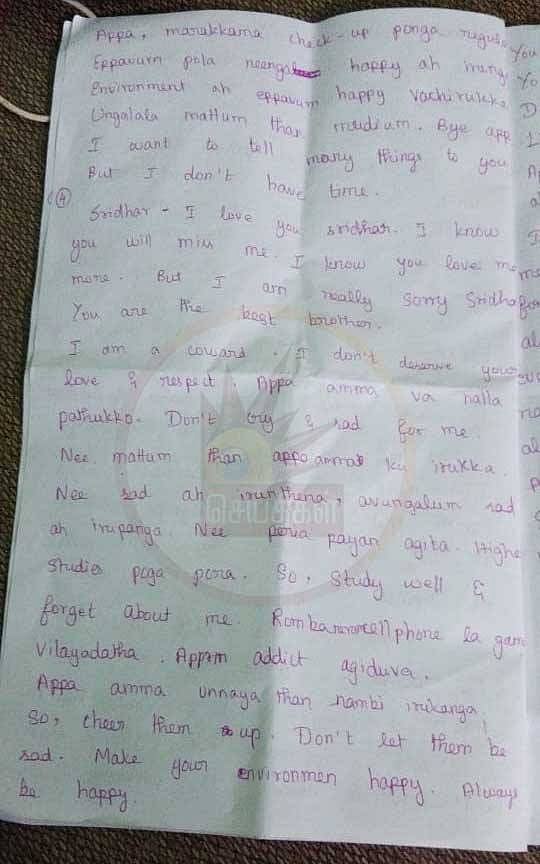 Appa, marakkama check-up ponga regula
Eppavum pola neenga happy ah irung
Environment ah eppavum happy vachirukka
Ungalala mattum than mudium. Bye app
I want to tell many things to you
But I don't have time.
④ Sridhar - I love you sridhar. I know
you will miss me. I know you love me
more. But I am really sorry Sridha
You are the best brother.
I am a coward. I don't deserve your
love & respect. Appa amma va nalla
pathukko. Don't cry & sad for me.
Nee mattum than appa amma ku irukka.
Nee sad ah irunthena, avungalum sad
ah irupanga. Nee peria payan agita. Highe
studies poga pora. So, study well &
forget about me. Romba cellphone la gam
vilayadatha. Appram addict agiduva.
Appa amma unnaya than nambi irukanga.
So, cheer them up. Don't let them be
sad. Make your environmen happy. Always
be happy.
செய்திகள்